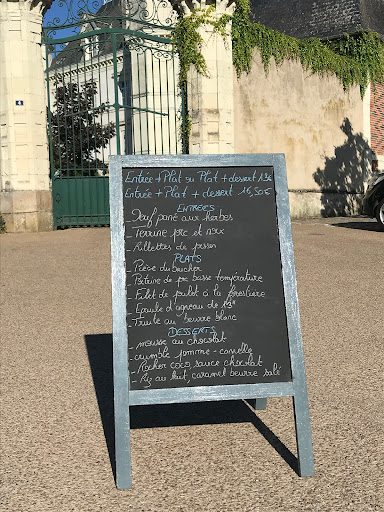 Entrée + Plat ou Plat + dessert 13€
Entrée + Plat + dessert 16,50€
ENTREES
- Oeuf pané aux herbes
- Terrine porc et noix
- Rillettes de poisson
PLATS
- Pièce du boucher
- Poitrine de porc basse température
- Filet de poulet à la forestière
- Epaule d'agneau de
- Truite au beurre blanc
DESSERTS
- mousse au chocolat
- crumble pomme - cannelle
- Rocher coco, sauce chocolat
- Riz au lait, caramel beurre salé